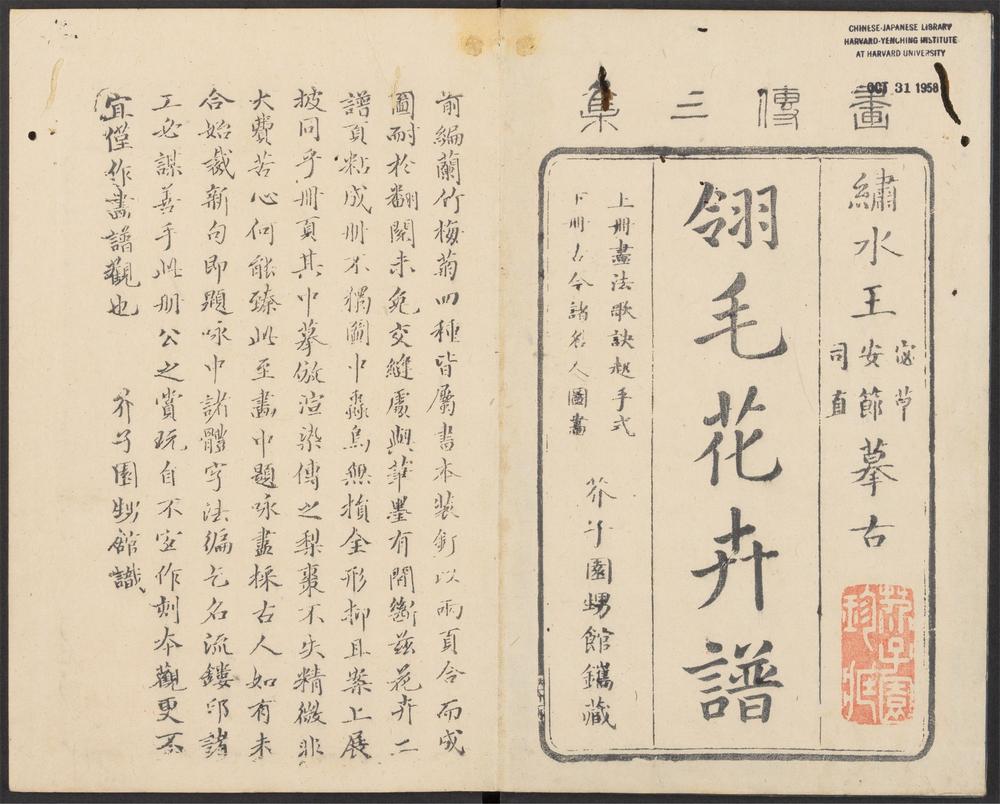 CHINESE-JAPANESE LIBRARY
HARVARD-YENCHING INSTITUTE
AT HARVARD UNIVERSITY
OCT 31 1958
畫傳三集
繡水王宓草安節司直摹古
芥子園珍藏
翎毛花卉譜
上冊畫法歌訣起手式
下冊古今諸名人圖畫
芥子園甥館鐫藏
前編蘭竹梅菊四種皆屬書本裝釘以兩頁合而成
圖耐於翻閱未免交縫處與筆墨有間斷茲花卉二
譜頁粘成冊不獨圖中蟲鳥無損全形抑且案上展
披同乎冊頁其中摹倣渲染傳之梨棗不失精微非
大費苦心何能臻此至畫中題咏盡採古人如有未
合始裁新句即題咏中諸體字法編乞名流鏤印諸
工必謀善手此冊公之賞玩自不宜作刻本觀更不
宜僅作畫譜觀也 芥子園甥館識